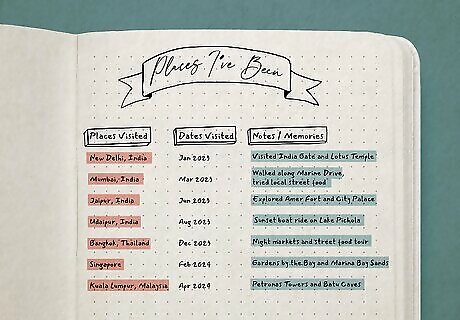 Places I've Been
Places Visited Dates Visited Notes / Memories
New Delhi, India Jan 2023 Visited India Gate and Lotus Temple
Mumbai, India Mar 2023 Walked along Marine Drive,
tried local street food
Jaipur, India Jun 2023 Explored Amer Fort and City Palace
Udaipur, India Aug 2023 Sunset boat ride on Lake Pichola
Bangkok, Thailand Dec 2023 Night markets and street food tour
Singapore Feb 2024 Gardens by the Bay and Marina Bay Sands
Kuala Lumpur, Malaysia Apr 2024 Petronas Towers and Batu Caves